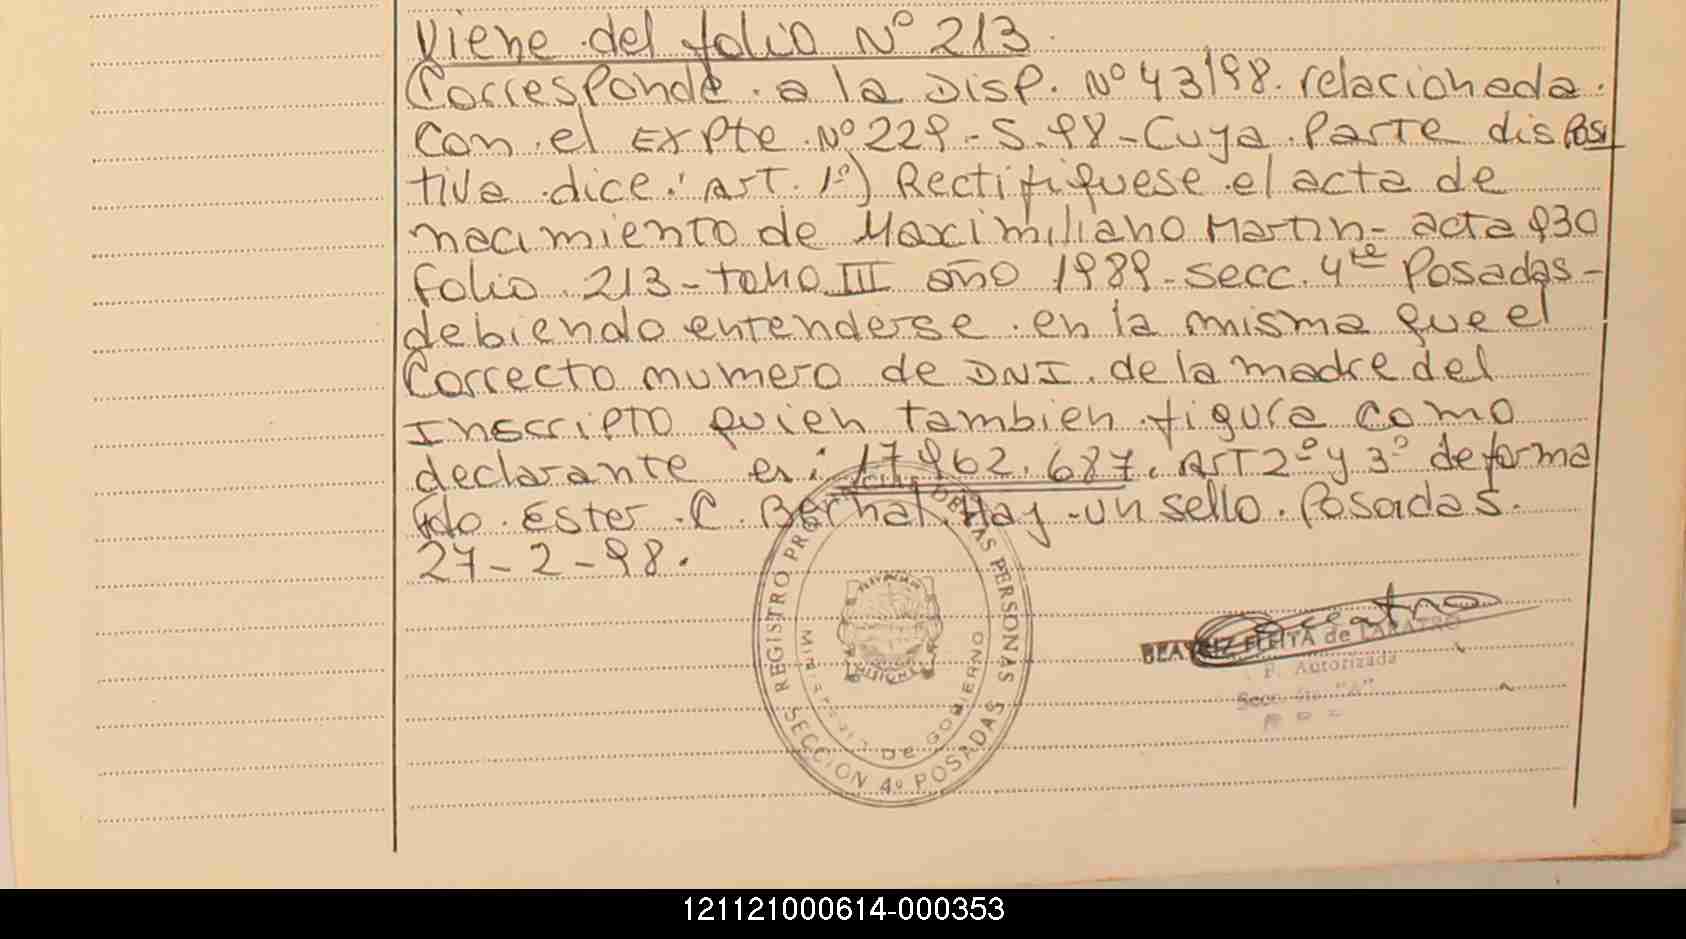 Viene del folio Nº 213.
Corresponde a la Disp. Nº 43/98. relacionada.
Con el Expte Nº 229-S-98-Cuya Parte disposi
tiva dice: "Art. 1º) Rectifiquese el acta de
nacimiento de Maximiliano Martin- acta 930
folio 213-tomo III año 1989-secc. 4ta Posadas-
debiendo entenderse en la misma que el
Correcto numero de DNI. de la madre del
Inscripto quien tambien figura como
declarante es: 17962.687. Art 2º y 3º de forma
fdo. Ester C. Bernal. Hay un sello. Posadas.
27-2-98.
REGISTRO PROVINCIAL DE LAS PERSONAS
MINISTERIO DE GOBIERNO
MISIONES
SECCION 4º POSADAS
BEATRIZ FLEITA de LABATRO
F. Autorizada
Secc. 4ta "A"